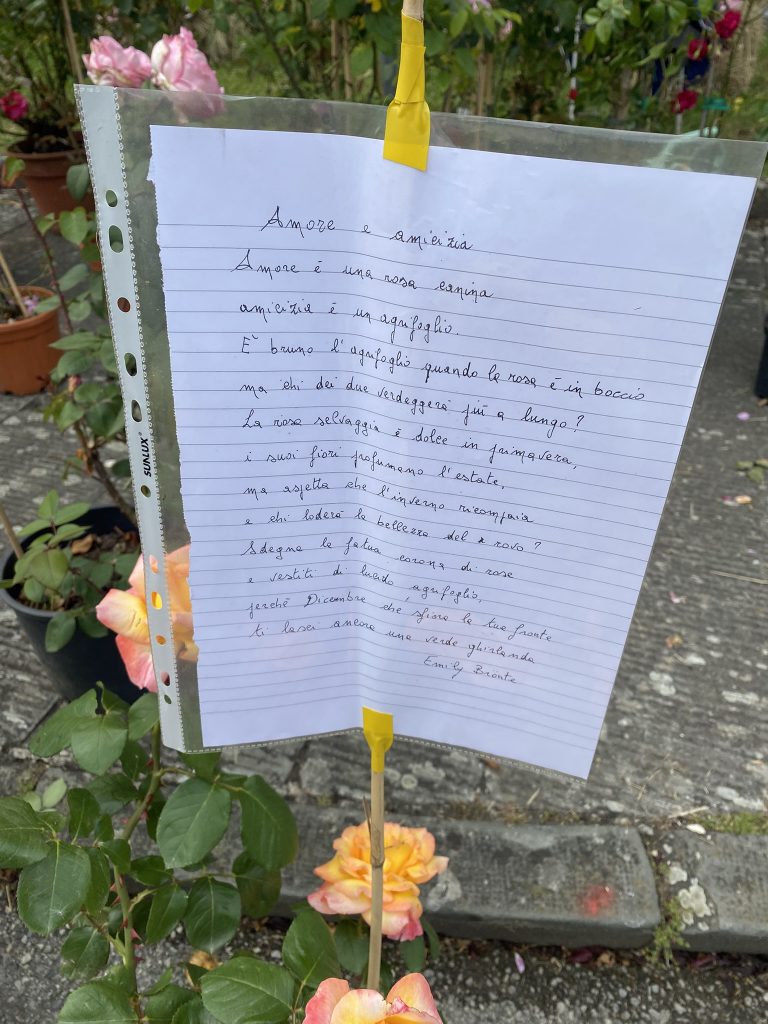 Amore e amicizia
Amore è una rosa canina
amicizia è un agrifoglio.
E' bruno l'agrifoglio quando la rosa è in boccio
ma chi dei due verdeggerà più a lungo?
La rosa selvaggia è dolce in primavera,
i suoi fiori profumano l'estate,
ma aspetta che l'inverno ricompaia
e chi loderà la bellezza del rovo?
Sdegna la fatua corona di rose
e vestiti di lucido agrifoglio,
perché Dicembre che sfiora la tua fronte
ti lasci ancora una verde ghirlanda
Emily Bronte
SUNLUX